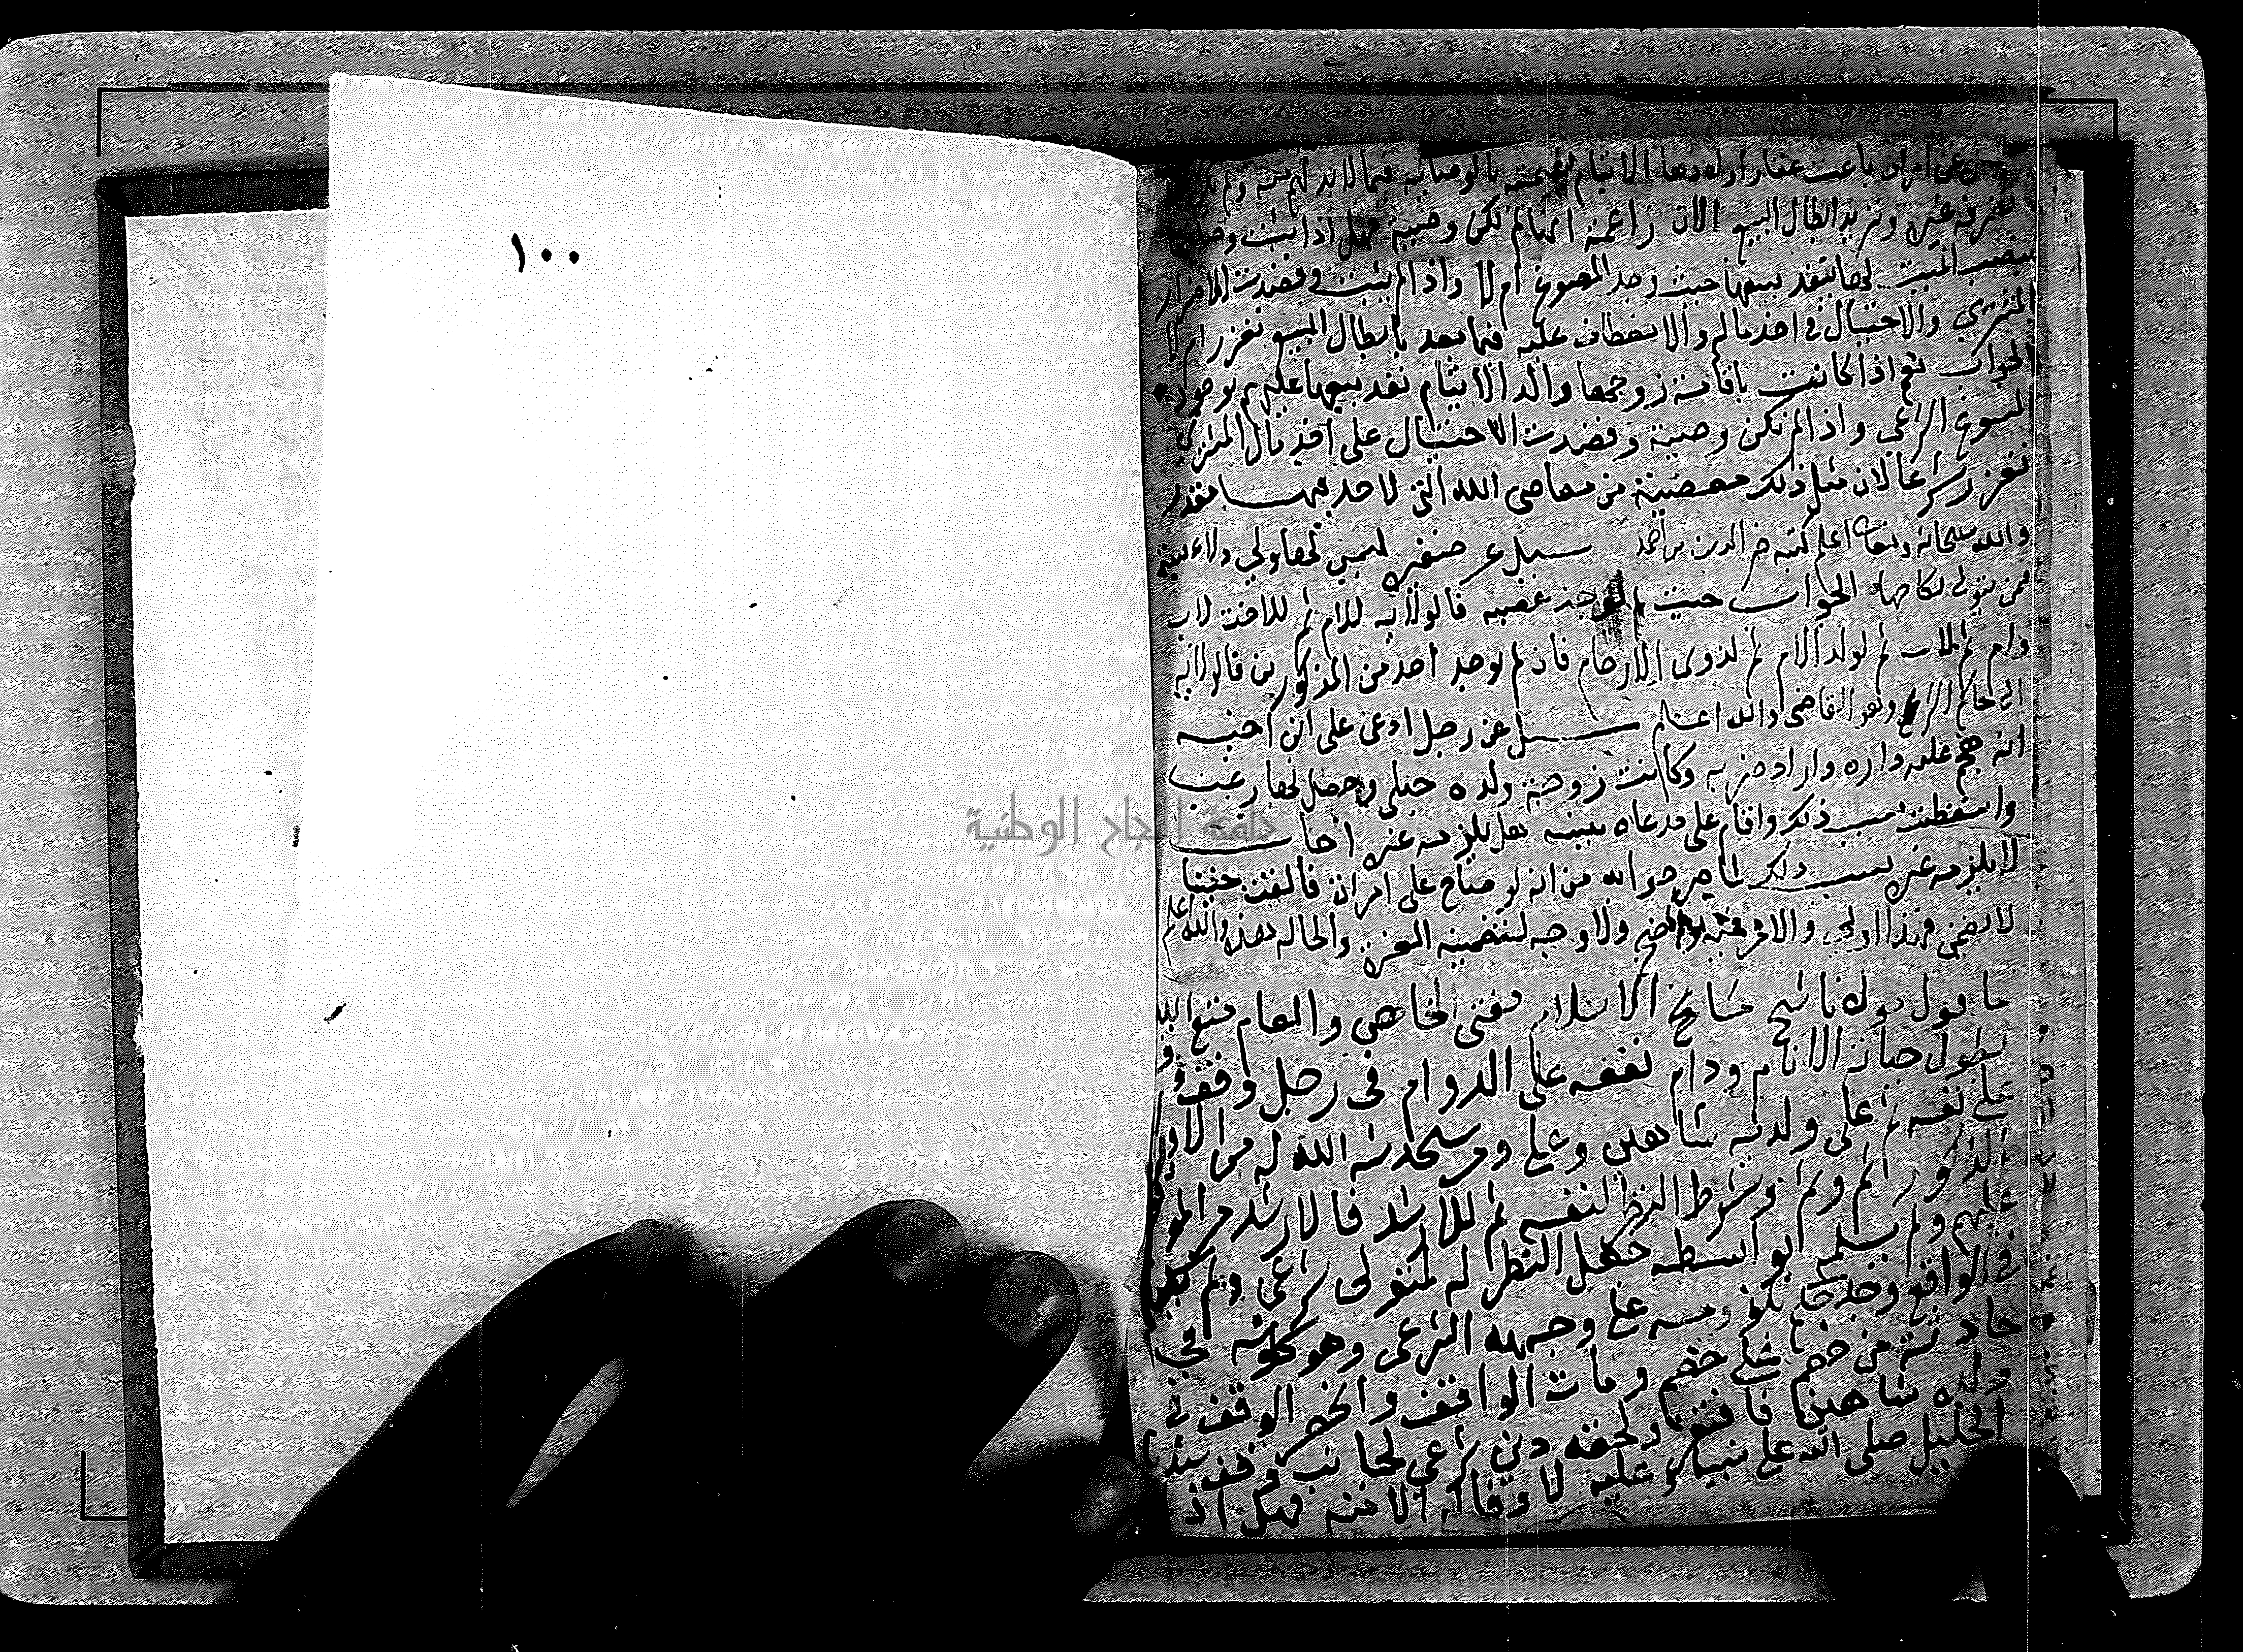 سئل عن امراة باعت عقار اولادها الايتام بالوصاية فيما لابد لهم منه ولم
غيره وتريد ابطال البيع الان زاعمة انها لم تكن وصية فهل اذا ثبت
الميت لها ينفذ بيعها حيث وجد المسوغ ام لا واذا لم يثبت وقصدت الاضرار
المشتري والاحتيال في اخذ ماله والاستعطاف عليه فيما بعد بابطال المبيع تعزر ام لا
الجواب نعم اذا كانت باقامة زوجها والد الايتام نفذ بيعها عليهم بوجود
المسوغ الشرعي واذا لم تكن وصية وقصدت الاحتيال على اخذ مال المشتري
تعزر شرعا لان مثل ذلك معصية من معاصي الله التي لا حد فيها مقدر
والله سبحانه وتعالى اعلم كتبه خير الدين بن احمد سئل عن صغيره ليس لها ولي
فمن يتولى نكاحها الجواب حيث لم يوجد عصبه فالولاية للام ثم للاخت لاب
وام ثم للاب ثم لولد الام ثم لذوي الارحام فان لم يوجد احد من المذكورين فالولاية
الى الحاكم الشرعي وهو القاضي والله اعلم سئل عن رجل ادعى على ابن اخيه
انه هجم عليه داره واراد ضربه وكانت زوجة ولده حبلى وحصل لها رعب
واسقطت بسبب ذلك واقام على مدعاه بينه هل يلزمه غره اجاب
لا يلزمه غره بسبب ذلك لما هو جوابه من انه لو صاح على امراة فالقت جنينا
لا يضمن فهذا اولى والامر فيه واضح ولا وجه لتضمينه الغرة والحالة هذه والله اعلم
ما قول مولانا شيخ مشايخ الاسلام مفتي الخاص والعام متع الله
بطول حياته الانام ودام نفعه على الدوام في رجل وقف
على نفسه ثم على ولديه شاهين وعلي ومن سيحدثه الله له من الاولاد
الذكور ثم وثم وشرط النظر لنفسه ثم للارشد فالارشد من الموقوف
عليهم ولم يسلمه بواسطه جعل النظر له لمتولى شرعي ولم
في الواقع وجد حكم على وجهه الشرعي وهو كونه في
حادثة من خصم على خصم ومات الواقف وانحصر الوقف في
ولده شاهين فافتقر ولحقه دين شرعي لجانب وقف سيدنا
الخليل صلى الله على نبينا وعليه لا وفا له الا منه فهل اذ
١٠٠
جامعة النجاح الوطنية